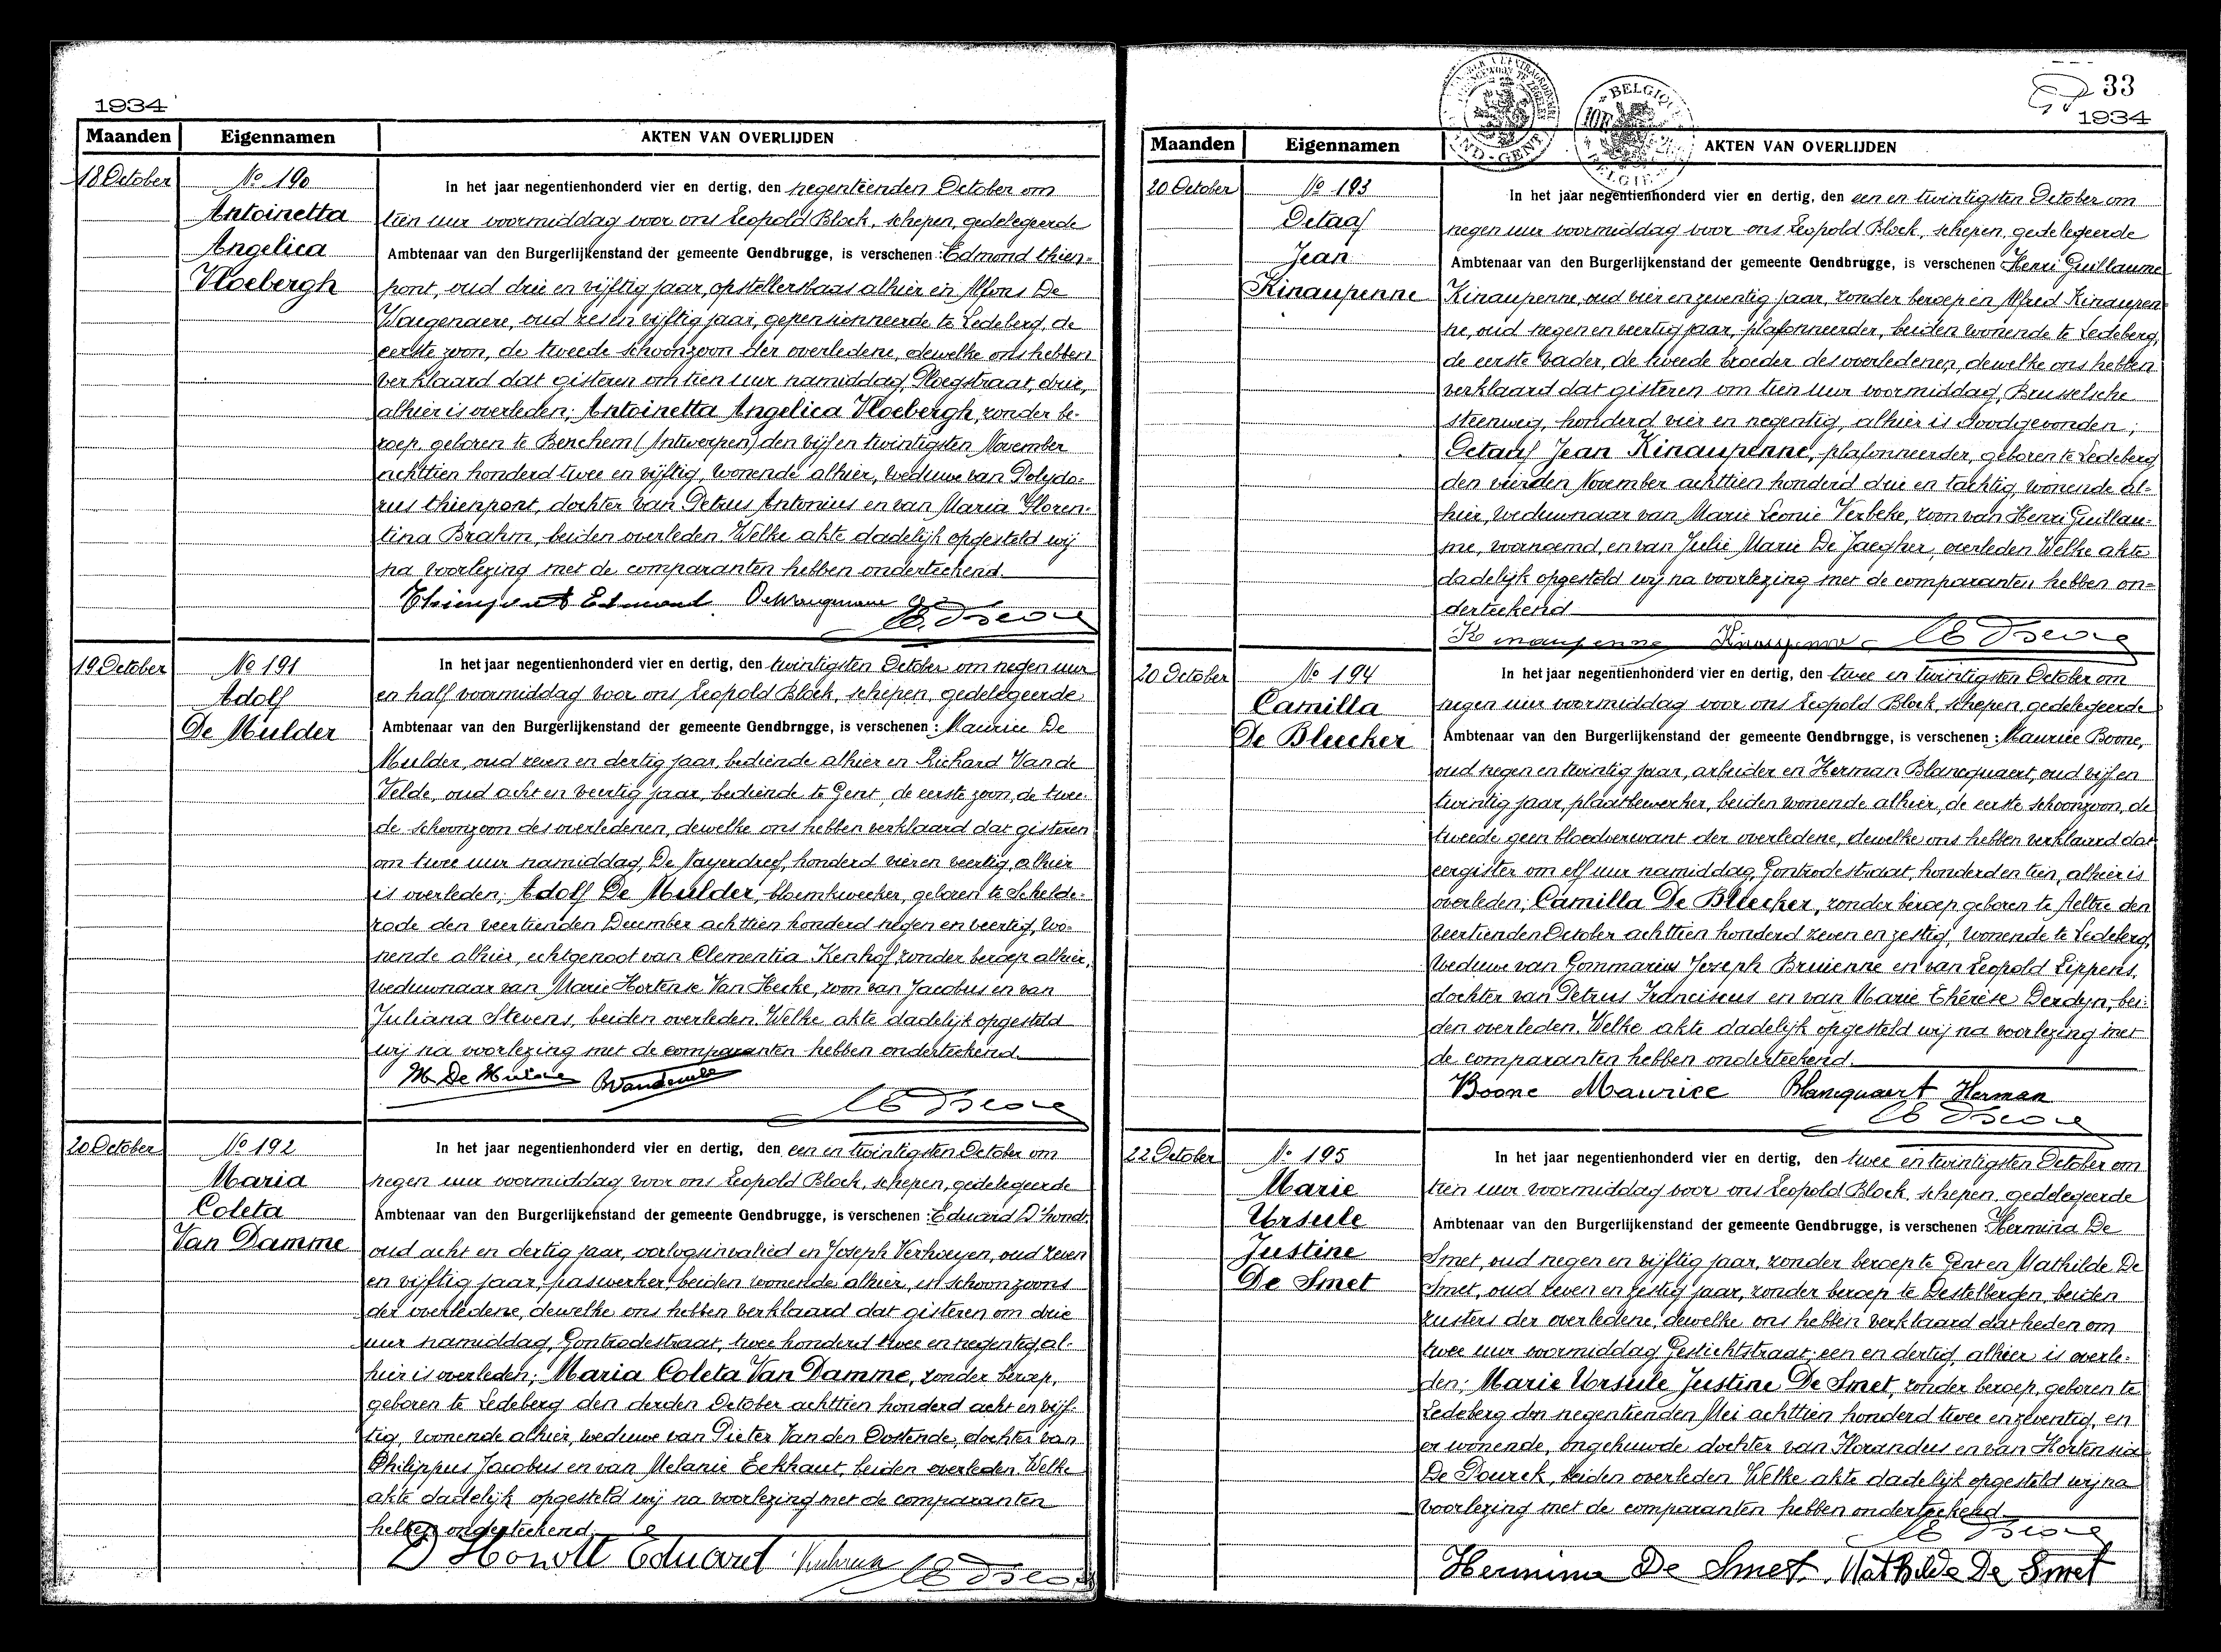 1934
Maanden Eigennamen AKTEN VAN OVERLIJDEN
18 October
No 190
Antoinetta
Angelica
Vloebergh
In het jaar negentienhonderd vier en dertig, den negentienden October om
tien uur voormiddag voor ons Leopold Block, schepen, gedelegeerde
Ambtenaar van den Burgerlijkenstand der gemeente Gendbrugge, is verschenen: Edmond Thien=
pont, oud drie en vijftig jaar, opstellersbaas alhier en Alfons De
Waegenaere, oud zes en vijftig jaar, gepensionneerde te Ledeberg, de
eerste zoon, de tweede schoonzoon der overledene, dewelke ons hebben
verklaard dat gisteren om tien uur namiddag, Ploegstraat, drie,
alhier is overleden; Antoinetta Angelica Vloebergh, zonder be-
roep, geboren te Berchem (Antwerpen) den vijf en twintigsten November
achttien honderd twee en vijftig, wonende alhier, weduwe van Polydo=
rus Thienpont, dochter van Petrus Antonius en van Maria Floren=
tina Brahm, beiden overleden. Welke akte dadelijk opgesteld wij
na voorlezing met de comparanten hebben onderteekend.
Thienpont Edmond.
19 October
No 191
Adolf
De Mulder
In het jaar negentienhonderd vier en dertig, den twintigsten October om negen uur
en half voormiddag voor ons Leopold Block, schepen, gedelegeerde
Ambtenaar van den Burgerlijkenstand der gemeente Gendbrngge, is verschenen: Maurice De
Mulder, oud zeven en dertig jaar, bediende alhier en Richard Van de
Velde, oud acht en veertig jaar, bediende te Gent, de eerste zoon, de twee-
de schoonzoon des overledenen, dewelke ons hebben verklaard dat gisteren
om twee uur namiddag, De Nayerdreef, honderd vier en veertig, alhier
is overleden; Adolf De Mulder, bloemkweeker, geboren te Schelde=
rode den veertienden December achttien honderd negen en veertig, wo=
nende alhier, echtgenoot van Clementia Kenhof, zonder beroep alhier,
weduwnaar van Marie Hortense Van Hecke, zoon van Jacobus en van
Juliana Stevens, beiden overleden. Welke akte dadelijk opgesteld
wij na voorlezing met de comparanten hebben onderteekend.
M De Mulder
20 October
No 192
Maria
Coleta
Van Damme
In het jaar negentienhonderd vier en dertig, den een en twintigsten October om
negen uur voormiddag voor ons Leopold Block, schepen, gedelegeerde
Ambtenaar van den Burgerlijkenstand der gemeente Gendbrugge, is verschenen: Eduard D'hondt,
oud acht en dertig jaar, oorlogsinvalied en Joseph Verhoeyen, oud zeven
en vijftig jaar, paswerker, beiden wonende alhier, en schoonzoons
der overledene, dewelke ons hebben verklaard dat gisteren om drie
uur namiddag, Gontrodestraat, twee honderd twee en negentig, al-
hier is overleden; Maria Coleta Van Damme, zonder beroep,
geboren te Ledeberg den derden October achttien honderd acht en vijf-
tig, wonende alhier, weduwe van Pieter Van den Oostende, dochter van
Philippus Jacobus en van Melanie Eekhaut, beiden overleden. Welke
akte dadelijk opgesteld wij na voorlezing met de comparanten
hebben onderteekend.
D'Hondt Eduard
33
1934
Maanden Eigennamen AKTEN VAN OVERLIJDEN
BELGIQUE
BELGIE
20 October
No 193
Octaaf
Jean
Kinaupenne
In het jaar negentienhonderd vier en dertig, den een en twintigsten October om
negen uur voormiddag voor ons Leopold Block, schepen, gedelegeerde
Ambtenaar van den Burgerlijkenstand der gemeente Gendbrugge, is verschenen: Henri Guillaume
Kinaupenne, oud vier en zeventig jaar, zonder beroep en Alfred Kinaupen=
ne, oud negen en veertig jaar, plafonneerder, beiden wonende te Ledeberg,
de eerste vader, de tweede broeder des overledenen, dewelke ons hebben
verklaard dat gisteren om tien uur voormiddag, Brusselsche
steenweg, honderd vier en negentig, alhier is doodgevonden;
Octaaf Jean Kinaupenne, plafonneerder, geboren te Ledeberg
den vierden November achttien honderd drie en tachtig, wonende al-
hier, weduwnaar van Marie Leonie Verbeke, zoon van Henri Guillau=
me, voornoemd, en van Julie Marie De Jaegher, overleden Welke akte
dadelijk opgesteld wij na voorlezing met de comparanten hebben on=
derteekend
Kinaupenne Kinaupenne
20 October
No 194
Camilla
De Bleecker
In het jaar negentienhonderd vier en dertig, den twee en twintigsten October om
negen uur voormiddag voor ons Leopold Block, schepen, gedelegeerde
Ambtenaar van den Burgerlijkenstand der gemeente Gendbrngge, is verschenen: Maurice Boone,
oud negen en twintig jaar, arbeider en Herman Blancquaert, oud vijf en
twintig jaar, plaatbewerker, beiden wonende alhier, de eerste schoonzoon, de
tweede geen bloedverwant der overledene, dewelke ons hebben verklaard dat
eergister om elf uur namiddag, Gontrodestraat, honderd en tien, alhier is
overleden; Camilla De Bleecker, zonder beroep geboren te Aeltre den
veertienden October achttien honderd zeven en zestig, wonende te Ledeberg,
weduwe van Gommarius Joseph Bruienne en van Leopold Lippens,
dochter van Petrus Franciscus en van Marie Thérèse Derdyn, bei-
den overleden. Welke akte dadelijk opgesteld wij na voorlezing met
de comparanten hebben onderteekend.
Boone Maurice Blancquaert Herman
22 October
No 195
Marie
Ursule
Justine
De Smet
In het jaar negentienhonderd vier en dertig, den twee en twintigsten October om
tien uur voormiddag voor ons Leopold Block, schepen, gedelegeerde
Ambtenaar van den Burgerlijkenstand der gemeente Gendbrugge, is verschenen: Hermina De
Smet, oud negen en vijftig jaar, zonder beroep te Gent en Mathilde De
Smet, oud zeven en zestig jaar, zonder beroep te Destelbergen, beiden
zusters der overledene, dewelke ons hebben verklaard dat heden om
twee uur voormiddag Gestichtstraat, een en dertig, alhier is overle-
den; Marie Ursule Justine De Smet, zonder beroep, geboren te
Ledeberg den negentienden Mei achttien honderd twee en zeventig, en
er wonende, ongehuwde dochter van Florandus en van Hortensia
De Pourck, beiden overleden. Welke akte dadelijk opgesteld wij na
voorlezing met de comparanten hebben onderteekend
Hermina De Smet. Mathilde De Smet